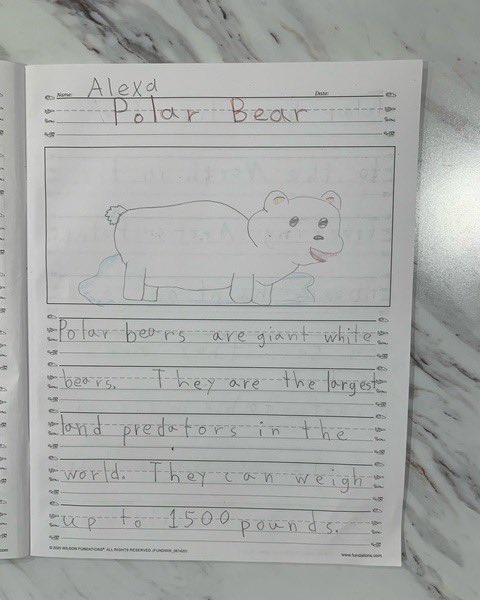 Name: Alexa Date:
Polar Bear
Polar bears are giant white
bears. They are the largest
land predators in the
world. They can weigh
up to 1500 pounds.
© 2020 WILSON FUNDATIONS®. ALL RIGHTS RESERVED. 
www.fundations.com